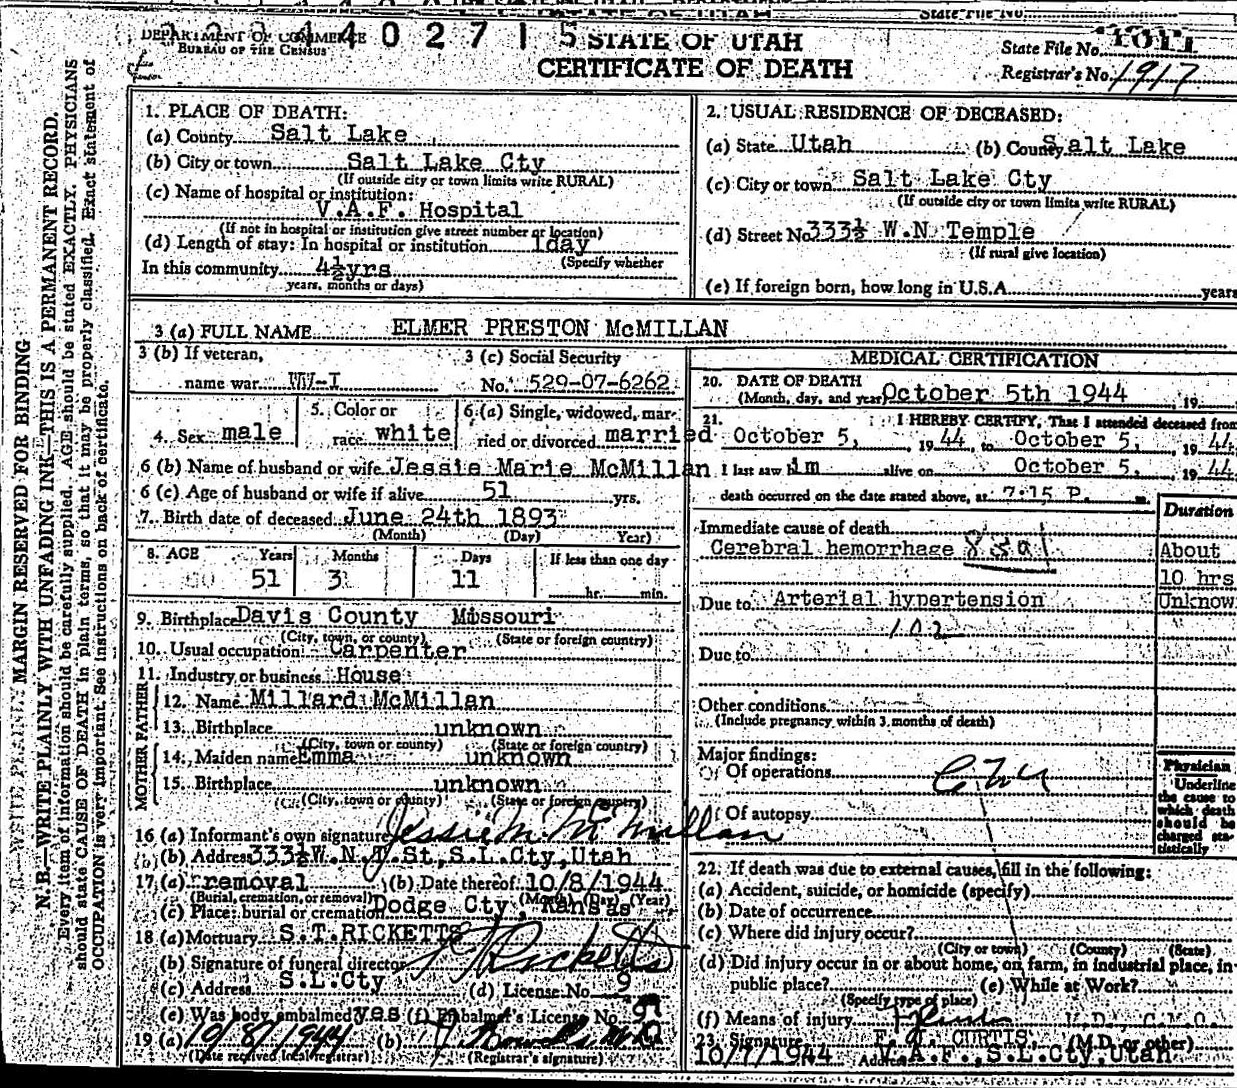 STATE OF UTAH
State File No.
DEPARTMENT OF COMMERCE
BUREAU OF THE CENSUS
4402715
STATE OF UTAH
CERTIFICATE OF DEATH
State File No. 1011
Registrar's No. 1917
MARGIN RESERVED FOR BINDING
N. B.—WRITE PLAINLY, WITH UNFADING INK—THIS IS A PERMANENT RECORD.
Every item of information should be carefully supplied. AGE should be stated EXACTLY. PHYSICIANS
should state CAUSE OF DEATH in plain terms, so that it may be properly classified. Exact statement of
OCCUPATION is very important. See instructions on back of certificate.
1. PLACE OF DEATH:
(a) County Salt Lake
(b) City or town Salt Lake Cty
(If outside city or town limits write RURAL)
(c) Name of hospital or institution:
V.A.F. Hospital
(If not in hospital or institution give street number or location)
(d) Length of stay: In hospital or institution 1day
(Specify whether
In this community 4½yrs
years, months or days)
2. USUAL RESIDENCE OF DECEASED:
(a) State Utah (b) County Salt Lake
(c) City or town Salt Lake Cty
(If outside city or town limits write RURAL)
(d) Street No. 333½ W.N Temple
(If rural give location)
(e) If foreign born, how long in U.S.A. years
3 (a) FULL NAME ELMER PRESTON McMILLAN
3 (b) If veteran,
name war WW-I
3 (c) Social Security
No. 529-07-6262
4. Sex male
5. Color or
race white
6 (a) Single, widowed, mar-
ried or divorced married
6 (b) Name of husband or wife Jessie Marie McMillan
6 (c) Age of husband or wife if alive 51 yrs.
7. Birth date of deceased June 24th 1893
(Month) (Day) Year)
8. AGE Years Months Days If less than one day
51 3 11 hr. min.
9. Birthplace Davis County Missouri
(City, town, or county) (State or foreign country)
10. Usual occupation Carpenter
11. Industry or business House
FATHER
12. Name Millard McMillan
13. Birthplace unknown
(City, town or county) (State or foreign country)
MOTHER
14. Maiden name Emma unknown
15. Birthplace unknown
(City, town or county) (State or foreign country)
16 (a) Informant's own signature Jessie M. McMillan
(b) Address 333½W.N.T.St,S.L.Cty,Utah
17 (a) removal (b) Date thereof 10/8/1944
(Burial, cremation, or removal) (Month) (Day) (Year)
(c) Place: burial or cremation Dodge Cty, Kansas
18 (a) Mortuary S.T.RICKETTS
(b) Signature of funeral director Ricketts
(c) Address S.L.Cty (d) License No. 9
(e) Was body embalmed yes (f) Embalmer's License No.
19 (a) 10/8/1944 (b)
(Date received local registrar) (Registrar's signature)
MEDICAL CERTIFICATION
20. DATE OF DEATH
(Month, day, and year) October 5th 1944 19
21. I HEREBY CERTIFY, That I attended deceased from
October 5, 19 44 to October 5, 19 44
I last saw im alive on October 5, 19 44
death occurred on the date stated above, at 7:15 P. m.
Duration
Immediate cause of death
Cerebral hemorrhage 83a1
About
10 hrs
Due to Arterial hypertension Unknow
102
Due to
Other conditions
(Include pregnancy within 3 months of death)
Major findings:
Of operations
Of autopsy
Physician
Underline
the cause to
which death
should be
charged sta-
tistically
22. If death was due to external causes, fill in the following:
(a) Accident, suicide, or homicide (specify)
(b) Date of occurrence
(c) Where did injury occur?
(City or town) (County) (State)
(d) Did injury occur in or about home, on farm, in industrial place, in
public place? (e) While at Work?
(Specify type of place)
(f) Means of injury
23. Signature CURTIS, M.D., C.M.O. (M.D. or other)
10/7/1944 Address V.A.F.,S.L.Cty,Utah